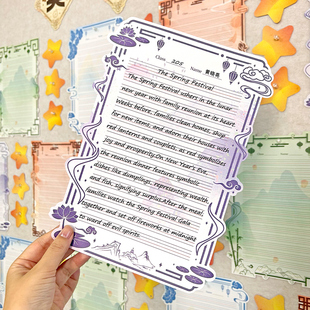 Class 205 Name
The Spring Festival
The Spring Festival ushers in the lunar
new year with family reunion at its heart.
Weeks before, families clean homes, shop
for new items, and adorn their houses with
red lanterns and couplets, as red symbolises
joy and prosperity.On New Year's Eve,
the reunion dinner features symbolic
dishes like dumplings, representing wealth,
and fish, signifying surplus.After the meal,
families watch the Spring Festival Gala
together and set off fireworks at midnight
to ward off evil spirits.